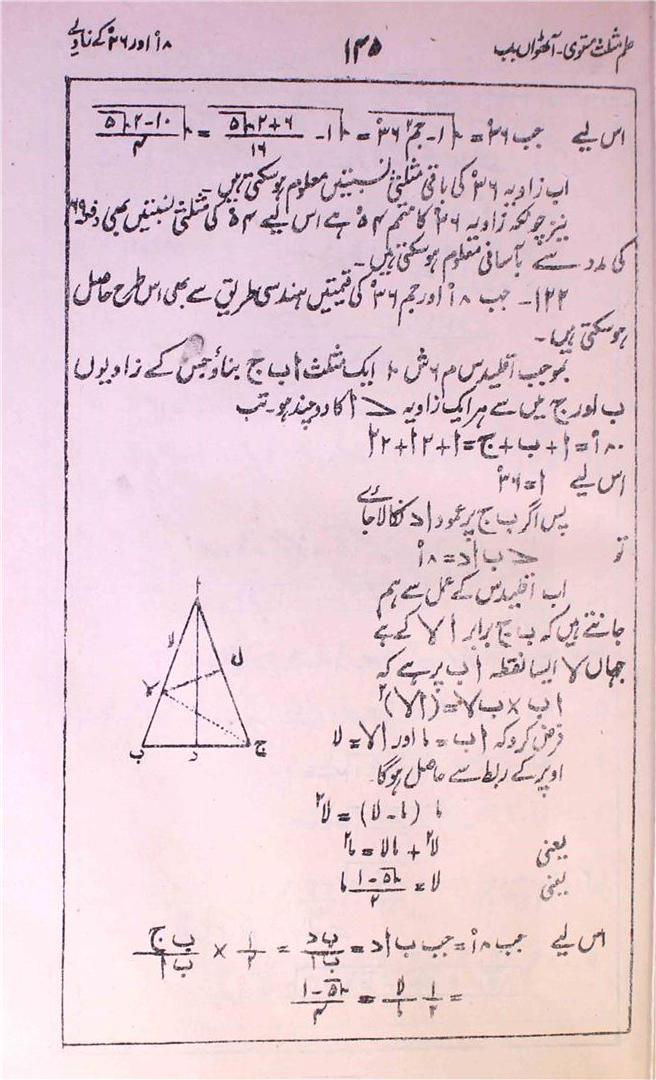 علم مثلث مستوی۔ آٹھواں باب
۱۴۵
۱۸° اور ۳۶° کے زاویے
اس لیے جب ۳۶° = √(۱ - جم۲ ۳۶°) = √(۱ - (۶+۲√۵)/۱۶) = √(۱۰-۲√۵)/۴
اب زاویہ ۳۶° کی باقی مثلثی نسبتیں معلوم ہوسکتی ہیں۔
نیز چونکہ زاویہ ۳۶° کا متمم ۵۴° ہے اس لیے ۵۴° کی مثلثی نسبتیں بھی دفعہ ۶۹
کی مدد سے بآسانی معلوم ہوسکتی ہیں۔
۱۲۲۔ جب ۱۸° اور جم ۳۶° کی قیمتیں ہندسی طریق سے بھی اس طرح حاصل
ہوسکتی ہیں۔
بموجب اقلیدس م ۶ ش ۱۰ ایک مثلث ا ب ج بناؤ جس کے زاویوں
ب اور ج میں سے ہر ایک زاویہ > ا کا دوچند ہو۔ تب
۱۸۰° = ا + ب + ج = ا + ۲ا + ۲ا
اس لیے ا = ۳۶°
پس اگر ب ج پر عمود ا د نکالا جائے
تو > ب ا د = ۱۸°
اب اقلیدس کے عمل سے ہم
جانتے ہیں کہ ب ج برابر ا لا کے ہے
جہاں لا ایسا نقطہ ا ب پر ہے کہ
ا ب × ب لا = (ا لا)۲
فرض کرو کہ ا ب = ما اور ا لا = لا
اوپر کے ربط سے حاصل ہوگا۔
ما (ما - لا) = لا۲
یعنی لا۲ + ما لا = ما۲
یعنی لا = ما (√۵-۱)/۲
اس لیے جب ۱۸° = جب ب ا د = ب د/ب ا = ۱/۲ × ب ج/ب ا
= ۱/۲ لا/ما = (√۵-۱)/۴
ا
لا
ل
ب
د
ج